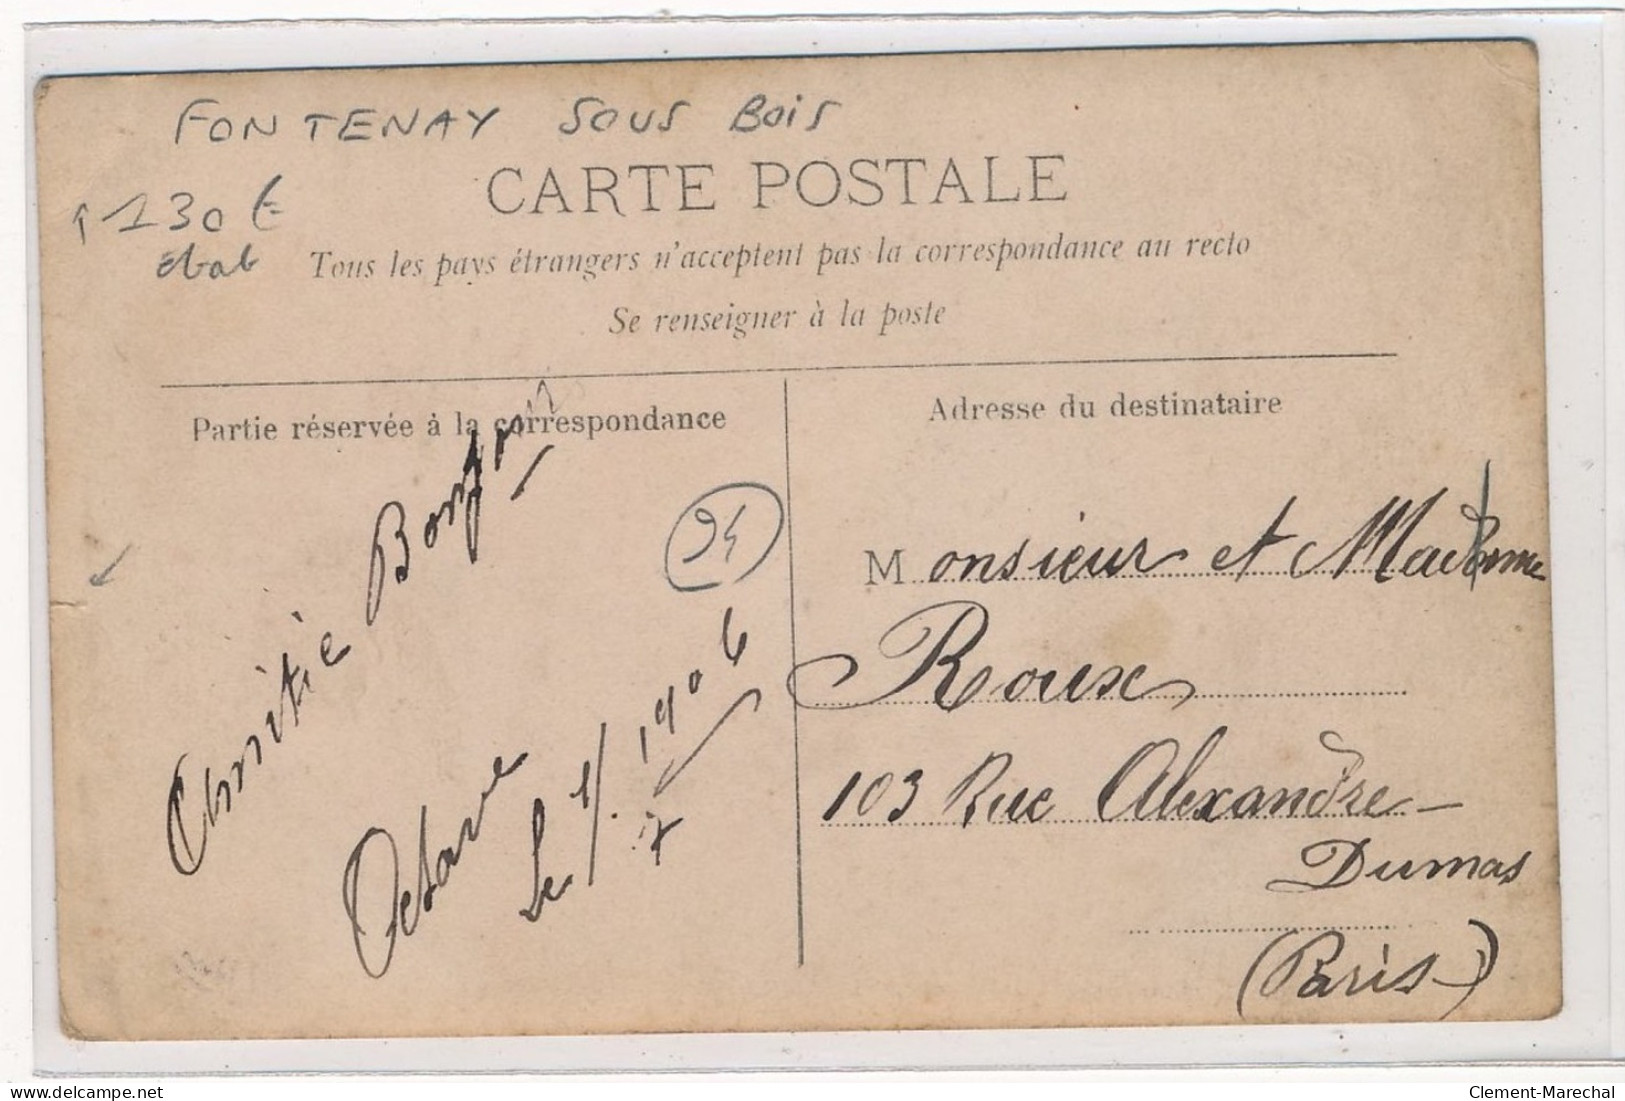 FONTENAY SOUS BOIS
130 €
état
CARTE POSTALE
Tous les pays étrangers n'acceptent pas la correspondance au recto
Se renseigner à la poste
Partie réservée à la correspondance
Adresse du destinataire
Amitié
Octave
Le 1/7 1906
94
Monsieur et Madame
Roux
103 Rue Alexandre
Dumas
(Paris)
Clement-Marechal